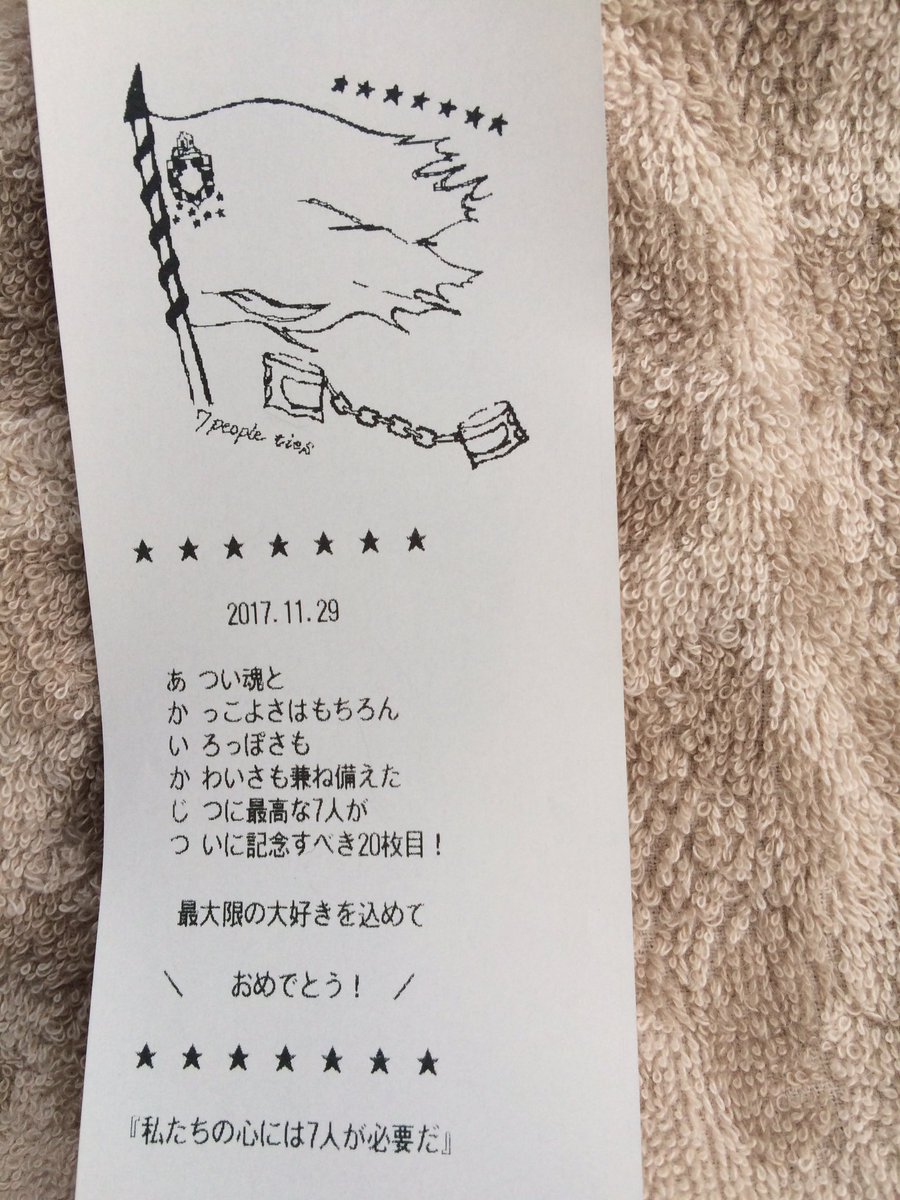 7 people ties
★ ★ ★ ★ ★ ★ ★
2017.11.29
あ つい魂と
か っこよさはもちろん
い ろっぽさも
か わいさも兼ね備えた
じ つに最高な7人が
つ いに記念すべき20枚目！
最大限の大好きを込めて
＼ おめでとう！ ／
★ ★ ★ ★ ★ ★ ★
『私たちの心には7人が必要だ』